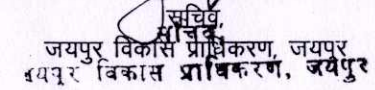 सचिव,
सचिव,
जयपुर विकास प्राधिकरण, जयपुर
जयपुर विकास प्राधिकरण, जयपुर